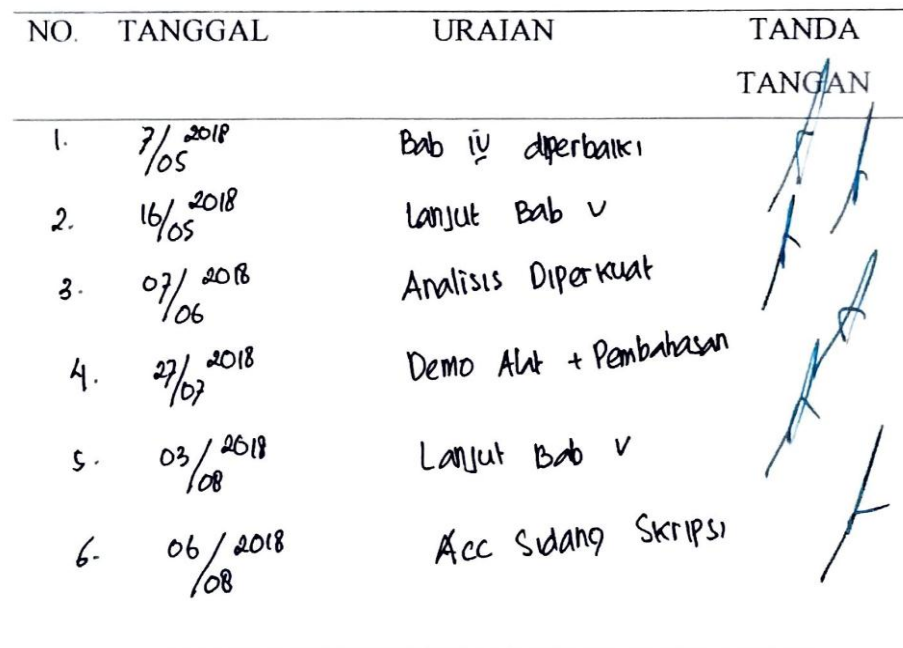 NO. TANGGAL URAIAN TANDA
TANGAN
1. 7/05 2018 Bab iv diperbaiki
2. 16/05 2018 Lanjut Bab V
3. 07/06 2018 Analisis Diperkuat
4. 27/07 2018 Demo Alat + Pembahasan
5. 03/08 2018 Lanjut Bab V
6. 06/08 2018 Acc Sidang Skripsi